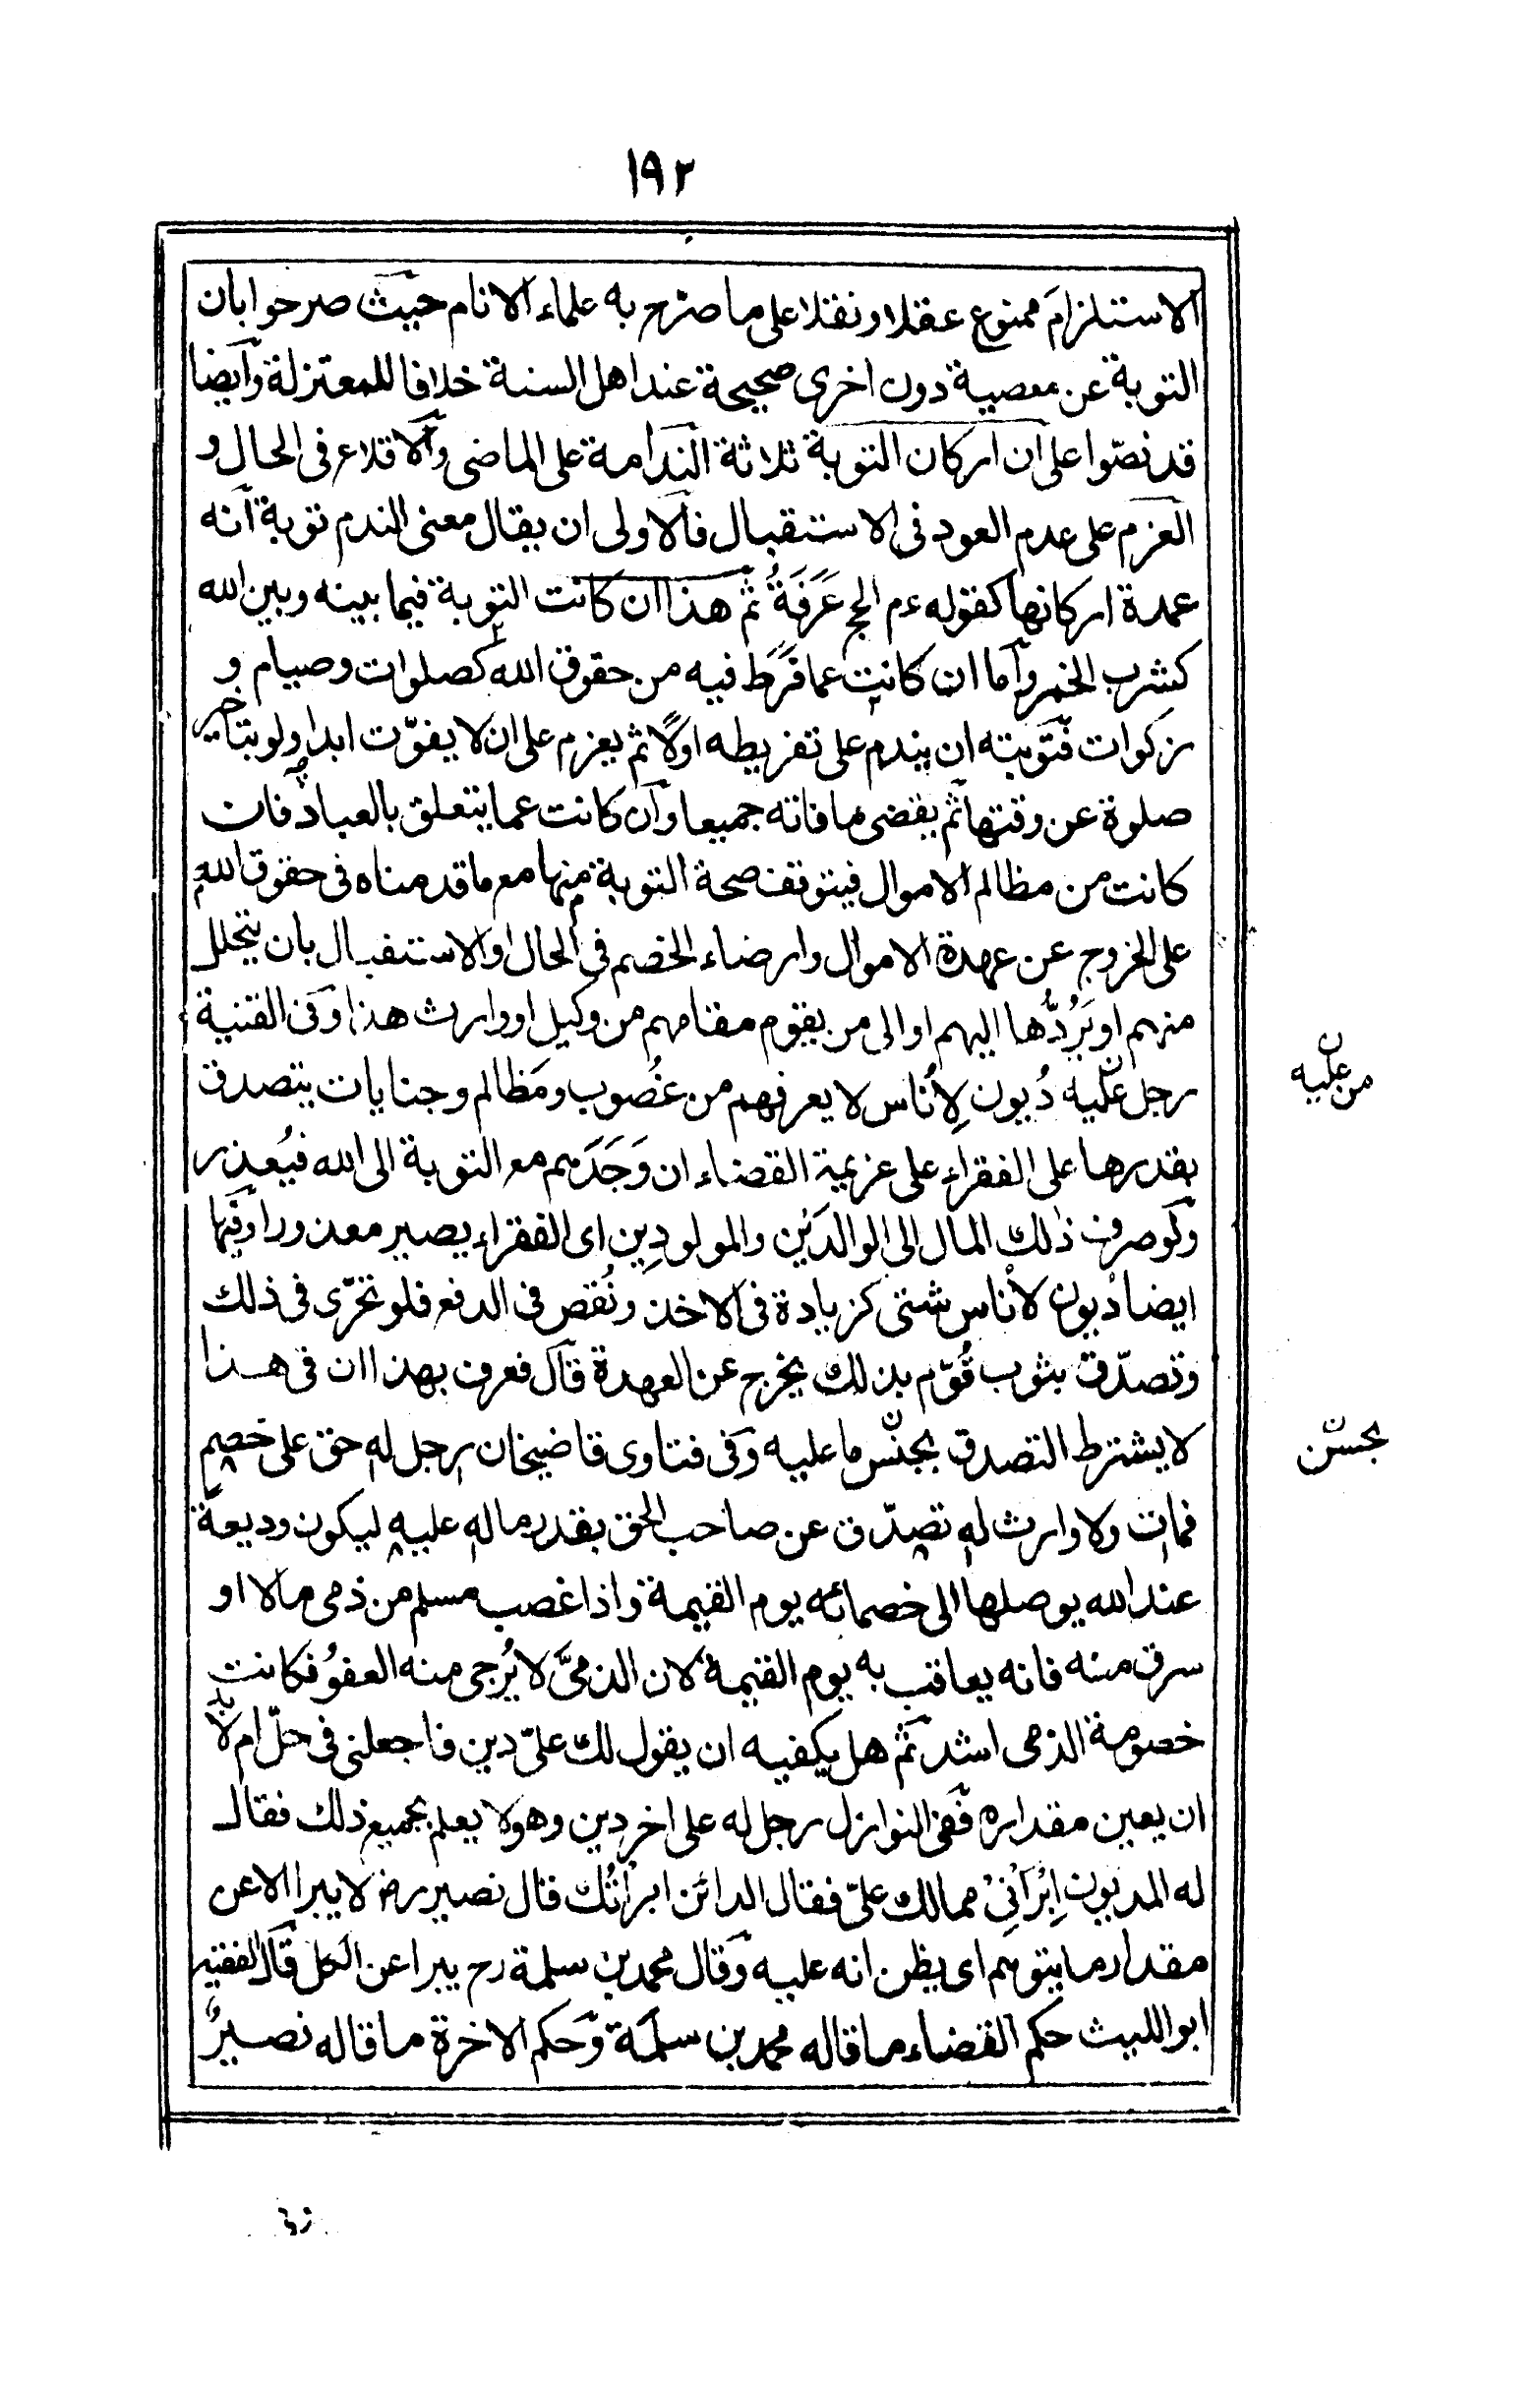 ١٩٢
الاستلزام ممنوع عقلا ونقلا على ما صرّح به علماء الانام حيث صرحوا بان
التوبة عن معصية دون اخرى صحيحة عند اهل السنة خلافا للمعتزلة وأيضا
قد نصّوا على ان اركان التوبة ثلاثة الندامة على الماضى والاقلاع فى الحال و
العزم على عدم العود فى الاستقبال فالاولى ان يقال معنى الندم توبة انه
عمدة اركانها كقوله ءم الحج عَرَفَةُ ثم هذا ان كانت التوبة فيما بينه وبين الله
كشرب الخمر وأما ان كانت عما فَرَّط فيه من حقوق الله كصلوات وصيام و
زكوات فتوبته ان يندم على تفريطه اولًا ثم يعزم على ان لا يفوّت ابدا ولو بتأخير
صلوة عن وقتها ثم يقضى ما فاته جميعا وان كانت عما يتعلق بالعباد فان
كانت من مظالم الاموال فيتوقف صحة التوبة منها مع ما قدمناه فى حقوق الله
على الخروج عن عهدة الاموال وارضاء الخصم فى الحال او الاستقبال بان يتحلل
منهم او يَرُدُّها اليهم او الى من يقوم مقامهم من وكيل او وارث هذا وفى القنية
رجل عليه دُيون لِأُناس لا يعرفهم من غُصُوب ومَظالم وجنايات يتصدق
من عليه
بقدرها على الفقراء على عزيمة القضاء ان وَجَدَهم مع التوبة الى الله فيُعذر
ولو صرف ذلك المال الى الوالدَيْن والمولودِين اى الفقراء يصير معذورا وفيها
ايضا ديون لأناس شتى كزيادة فى الاخذ ونُقص فى الدفع فلو تحرّى فى ذلك
وتصدّق بثوب قُوِّم بذلك يخرج عن العهدة قال فعرف بهذا ان فى هذا
لا يشترط التصدق بجنس ما عليه وفى فتاوى قاضيخان رجل له حق على خصم
بحسن
فمات ولا وارث له تصدّق عن صاحب الحق بقدر ماله عليه ليكون وديعة
عند الله يوصلها الى خصمائه يوم القيمة واذا غصب مسلم من ذمى مالا او
سرق منه فانه يعاقب به يوم القيمة لان الذمىَّ لا يُرجى منه العفوُ فكانت
خصومة الذمى اشد ثم هل يكفيه ان يقول لك علىّ دين فاجعلنى فى حلّ ام لا بدّ
ان يعين مقداره ففى النوازل رجل له على اخر دين وهو لا يعلم بجميع ذلك فقال
له المديون اِبْرَأْنِىْ ممالك علىّ فقال الدائن ابرأتُك قال نصير رض لا يبرا الا عن
مقدار ما يتوهم اى يظن انه عليه وقال محمد بن سلمة رح يبرا عن الكل قال الفقيه
ابو الليث حكم القضاء ما قاله محمد بن سلمة وحكم الاخرة ما قاله نصيرٌ